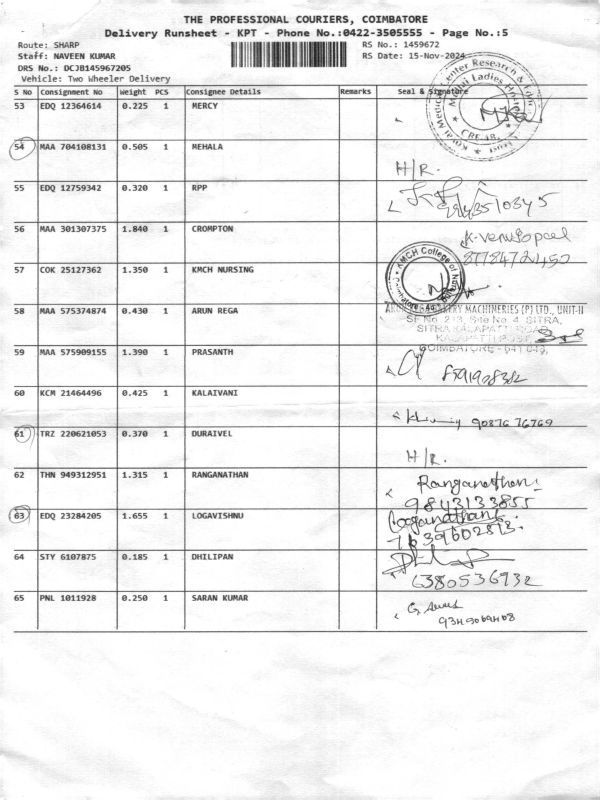 THE PROFESSIONAL COURIERS, COIMBATORE
Delivery Runsheet - KPT - Phone No.:0422-3505555 - Page No.:5
Route: SHARP
RS No.: 1459672
Staff: NAVEEN KUMAR
RS Date: 15-Nov-2024
DRS No.: DCJB145967205
Vehicle: Two Wheeler Delivery
S No Consignment No Weight PCS Consignee Details Remarks Seal & Signature
53 EDQ 12364614 0.225 1 MERCY
54 MAA 704108131 0.505 1 MEHALA H/R.
55 EDQ 12759342 0.320 1 RPP
56 MAA 301307375 1.840 1 CROMPTON K-Venugopal
8778472450
57 COK 25127362 1.350 1 KMCH NURSING
58 MAA 575374874 0.430 1 ARUN REGA MACHINERIES (P) LTD., UNIT-II
SITRA
COIMBATORE
59 MAA 575909155 1.390 1 PRASANTH
60 KCM 21464496 0.425 1 KALAIVANI 90876 76769
61 TRZ 220621053 0.370 1 DURAIVEL H/R.
62 THN 949312951 1.315 1 RANGANATHAN Ranganathan
9843133855
63 EDQ 23284205 1.655 1 LOGAVISHNU Loganathan
64 STY 6107875 0.185 1 DHILIPAN
6380536932
65 PNL 1011928 0.250 1 SARAN KUMAR